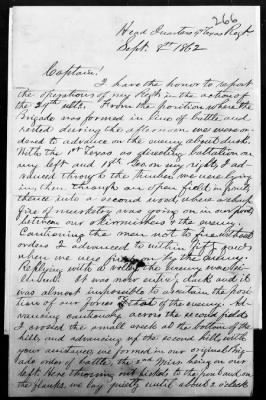 266
Head Quarters 4 Texas Regt
Sept. 8th 1862
Captain!
I have the honor to report
the operations of my Regt in the action of
the 29th ulto. From the position where the
Brigade was formed in line of battle and
rested during the afternoon we were or-
dered to advance on the enemy about dusk.
With the 1st Texas as directing battalion on
my left and 18th Geo. on my right, I ad-
vanced through the timber we were lying
in, then through an open field in front,
thence into a second wood, where a sharp
fire of musketry was going on in our front
between our skirmishers & the enemy.
Cautioning the men not to fire without
orders I advanced to within fifty yards
when we were fired on by the enemy.
Replying with a volley the enemy was
silenced. It was now entirely dark and it
was almost impossible to ascertain the posi-
tion of our forces or that of the enemy. Ad-
vancing cautiously across the second field
I crossed the small creek at the bottom of the
hill, and advancing up the second hill, with
your assistance, we formed in our original Brig-
ade order of battle, the 2nd Miss. being on our
left. Here throwing out pickets to the front and on
the flanks we lay quietly until about 2 o'clock